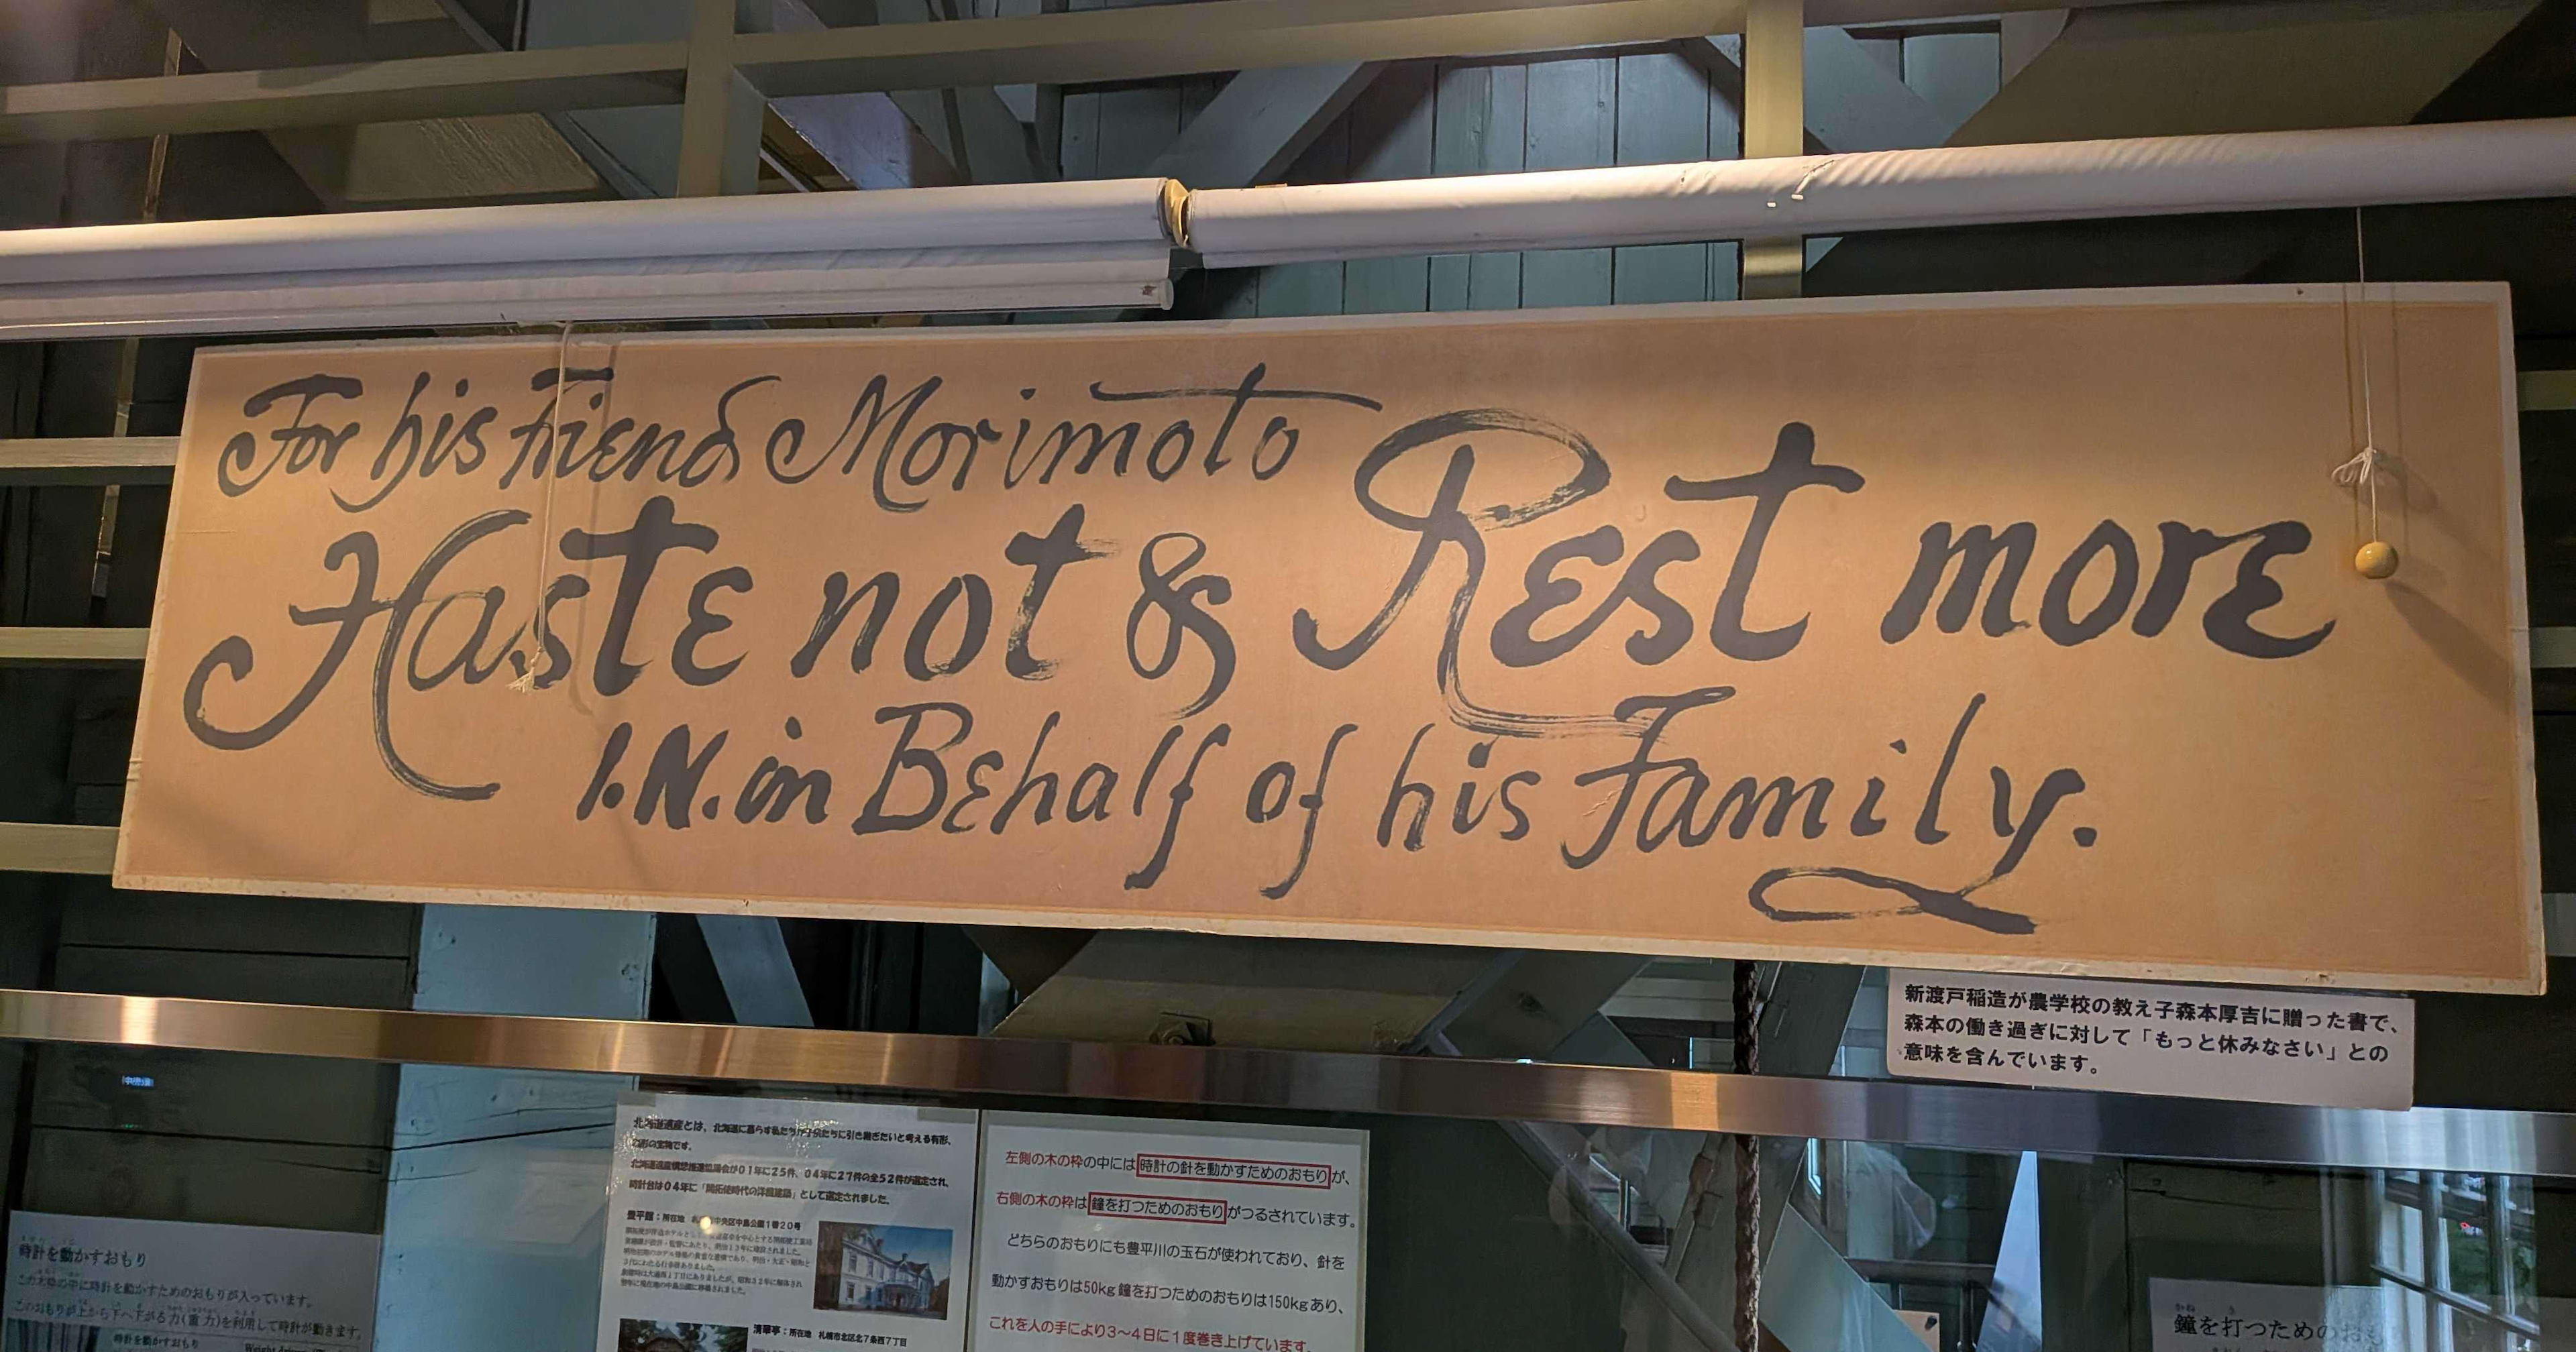 For his Friend Morimoto
Haste not & Rest more
I.N. in Behalf of his Family.
新渡戸稲造が農学校の教え子森本厚吉に贈った書で、
森本の働き過ぎに対して「もっと休みなさい」との
意味を含んでいます。
北海道遺産とは、北海道に暮らす私たちが子供たちに引き継ぎたいと考える有形、
の宝物です。
北海道遺産構想推進協議会が01年に25件、04年に27件の全52件が選定され、
時計台は04年に「開拓使時代の洋風建築」として選定されました。
豊平館：所在地 中央区中島公園1番20号
清華亭：所在地 札幌市北区北7条西7丁目
左側の木の枠の中には時計の針を動かすためのおもりが、
右側の木の枠は鐘を打つためのおもりがつるされています。
どちらのおもりにも豊平川の玉石が使われており、針を
動かすおもりは50kg 鐘を打つためのおもりは150kgあり、
これを人の手により3～4日に1度巻き上げています。
時計を動かすおもり
この木枠の中に時計を動かすためのおもりが入っています。
このおもりが上から下へ下がる力(重力)を利用して時計が動きます。
時計を動かすおもり
鐘を打つためのおも